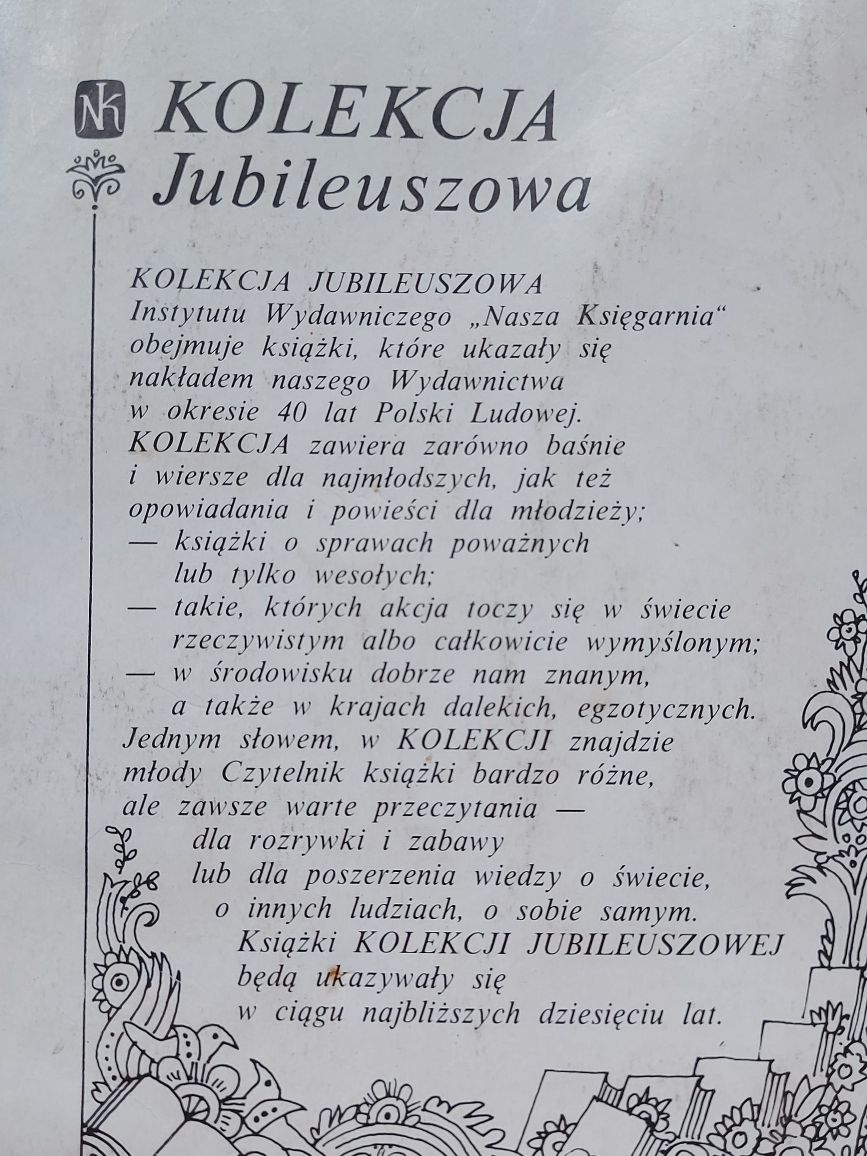 NK
KOLEKCJA
Jubileuszowa
KOLEKCJA JUBILEUSZOWA
Instytutu Wydawniczego „Nasza Księgarnia“
obejmuje książki, które ukazały się
nakładem naszego Wydawnictwa
w okresie 40 lat Polski Ludowej.
KOLEKCJA zawiera zarówno baśnie
i wiersze dla najmłodszych, jak też
opowiadania i powieści dla młodzieży;
— książki o sprawach poważnych
lub tylko wesołych;
— takie, których akcja toczy się w świecie
rzeczywistym albo całkowicie wymyślonym;
— w środowisku dobrze nam znanym,
a także w krajach dalekich, egzotycznych.
Jednym słowem, w KOLEKCJI znajdzie
młody Czytelnik książki bardzo różne,
ale zawsze warte przeczytania —
dla rozrywki i zabawy
lub dla poszerzenia wiedzy o świecie,
o innych ludziach, o sobie samym.
Książki KOLEKCJI JUBILEUSZOWEJ
będą ukazywały się
w ciągu najbliższych dziesięciu lat.